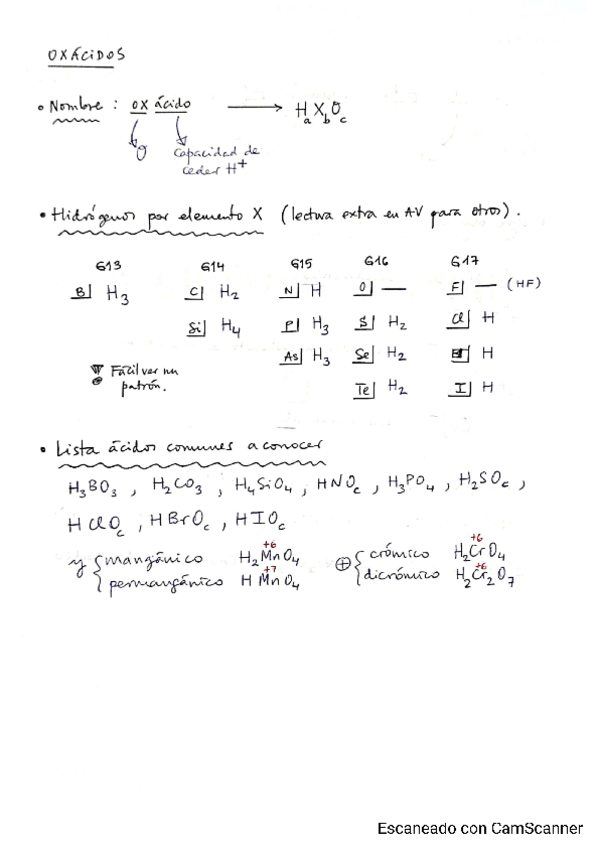 OXÁCIDOS
• Nombre : ox ácido ⟶ HₐX_bO_c
O Capacidad de
ceder H⁺
• Hidrógenos por elemento X (lectura extra en AV para otros).
G13 G14 G15 G16 G17
B H₃ C H₂ N H O — F — (HF)
Si H₄ P H₃ S H₂ Cl H
As H₃ Se H₂ Br H
Te H₂ I H
Fácil ver un
patrón.
• Lista ácidos comunes a conocer
H₃BO₃ , H₂CO₃ , H₄SiO₄ , HNO_c , H₃PO₄ , H₂SO_c ,
HClO_c , HBrO_c , HIO_c
y { mangánico H₂MnO₄ +6 ⊕ { crómico H₂CrO₄ +6
permangánico HMnO₄ +7 dicrómico H₂Cr₂O₇ +6
Escaneado con CamScanner